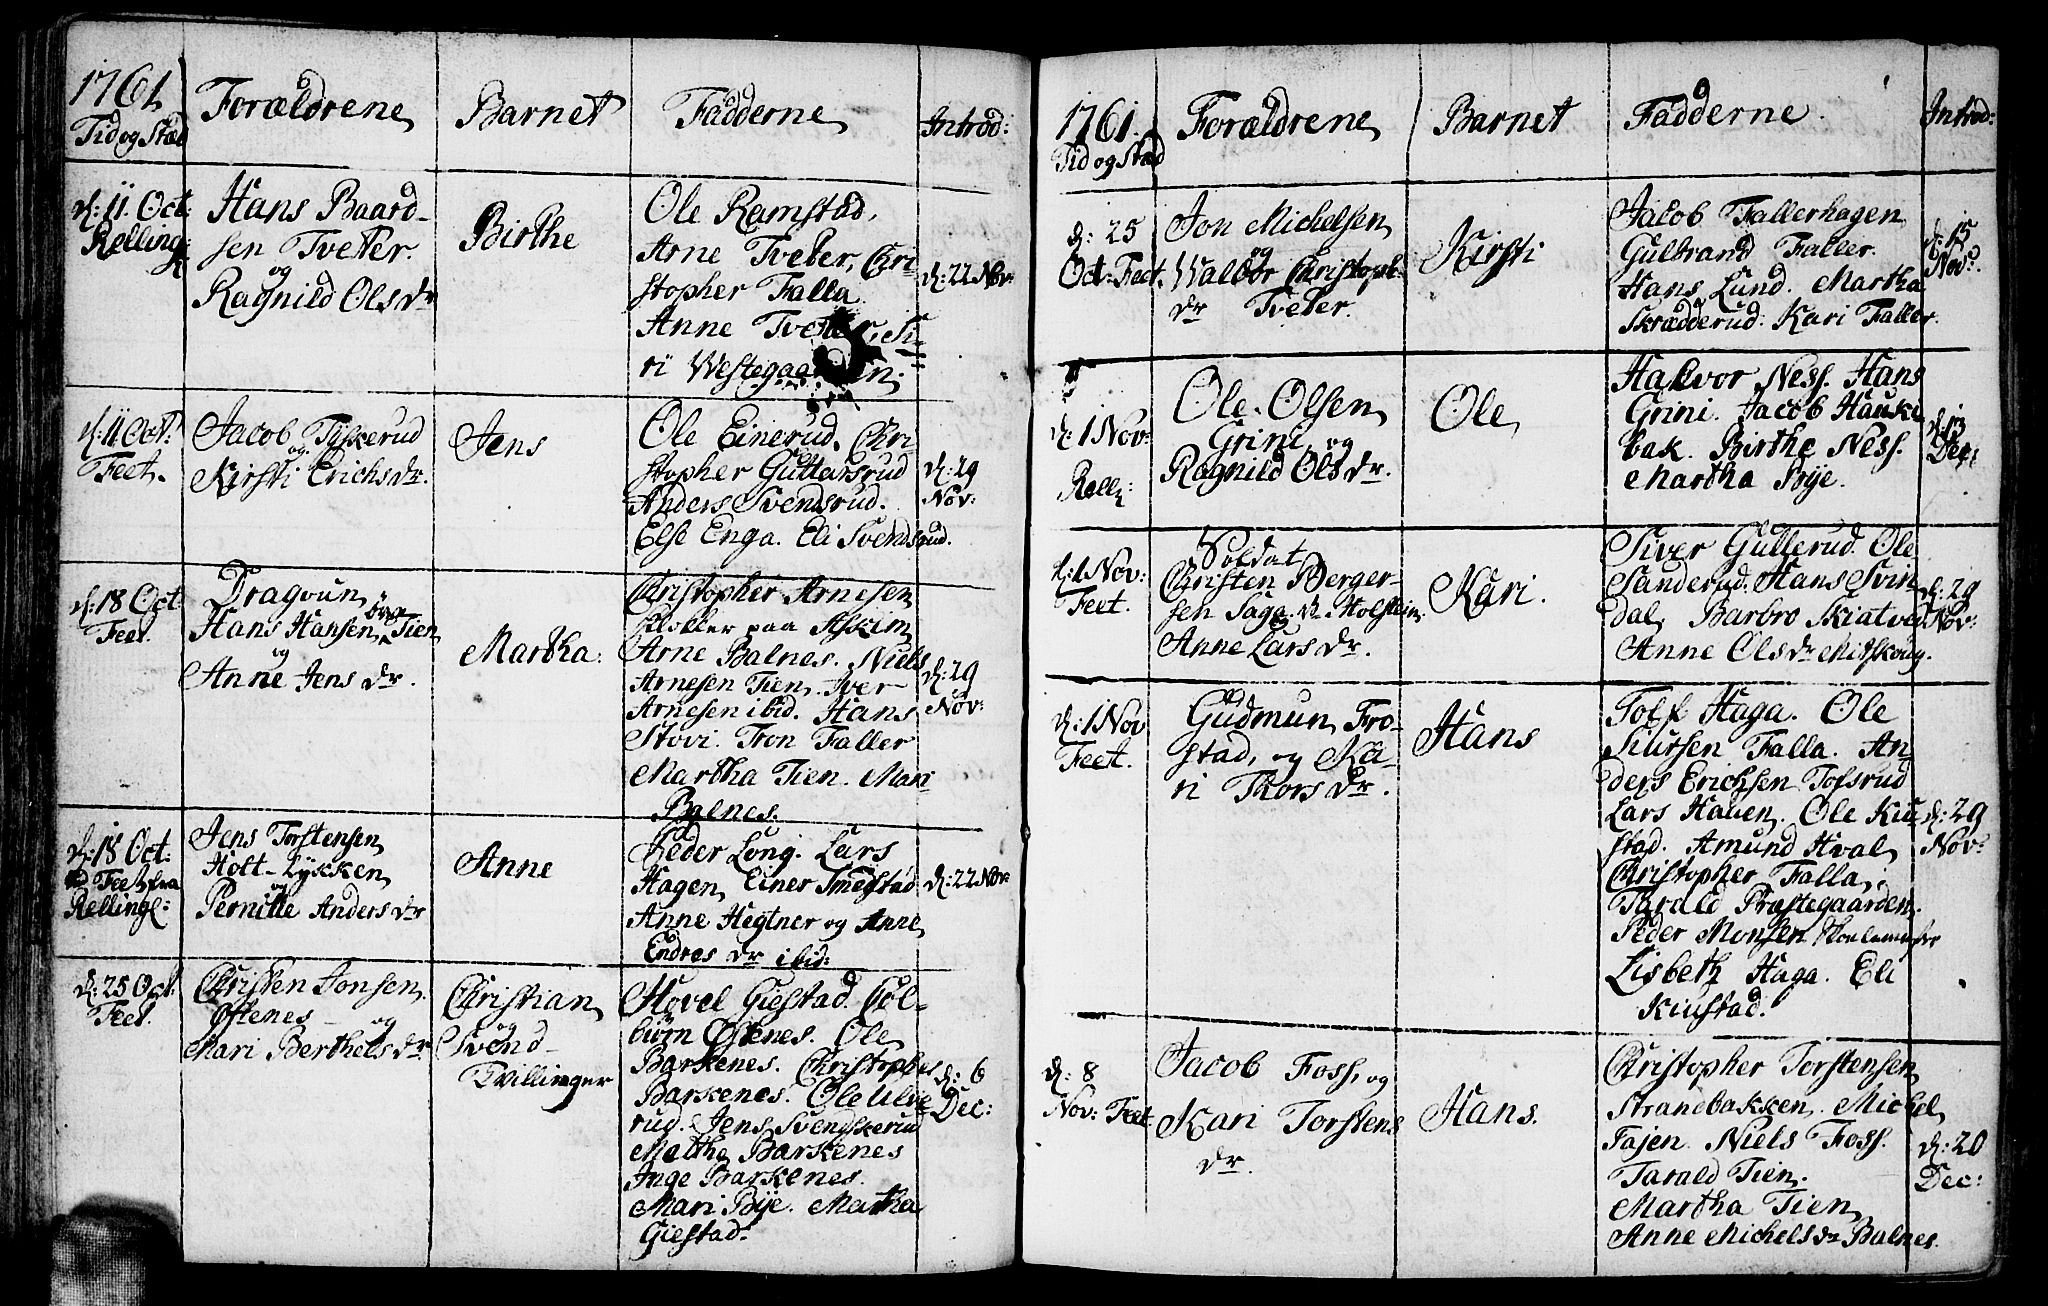 1761
Tid og Stæd
Forældrene
Barnet
Fadderne
Introd:
d: 11. Oct:
Relling:
Hans Baard-
sen Tveter.
og
Ragnild Olsdr
Birthe
Ole Ramstad,
Arne Tveter, Chri-
stopher Falla
Anne Tveter, Si-
ri Westegaarden.
d: 22 Nov:
d: 11 Oct:
Feet.
Jacob Tyskerud
og
Kirsti Erichsdr.
Jens
Ole Einerud, Chri
stopher Guttersrud
Anders Svendsrud.
Else Enga. Eli Svendsrud.
d: 29
Nov:
d: 18 Oct
Feet.
Dragoun
Hans Hansen Tien
og
Anne Jens dr.
Martha:
Christopher Arnesen
Kloller paa Askim
Arne Balnes. Niels
Arnesen Tien. Iver
Arnesen ibid. Hans
Stovi. Tron Faller
Martha Tien. Mari
Balnes.
d: 29
Nov:
d: 18 Oct:
Feet fra
Relling:
Jens Torstensen
Holt-Lycken
og
Pernille Anders dr
Anne
Peder Long. Lars
Hagen, Einer Smedstad
Anne Hegtner og Anne
Endres dr ibid:
d: 22 Nov:
d: 25 Oct:
Feet.
Christen Jonsen
Ostenes - og
Mari Berthels dr
Christian
og
Svend
Tvillinger
Hovel Giestad. Col-
biørn Ostenes. Ole
Barkenes. Christopher
Barkenes. Ole Ulve
rud. Jens Svendskerud
Malthe Barkenes
Inge Barkenes.
Mari Bye. Martha
Giestad.
d: 6
Dec:
1761.
Tid og Stæd
Forældrene
Barnet
Fadderne.
Introd:
d: 25
Oct. Feet.
Jon Michelsen
og
Walbor Christoph-
dr Tveter.
Kirsti
Jacob Fallerhagen
Gulbrand Faller.
Hans Lund. Martha
Skrædderud. Kari Faller.
d: 15
Nov:
d: 1 Nov:
Rell:
Ole Olsen
Grini og
Ragnild Olsdr.
Ole
Halvor Ness. Hans
Grini. Jacob Hauke
bak. Birthe Ness.
Martha Prye.
d: 13
Dec:
d: 1 Nov:
Feet.
Soldat
Christen Berger-
sen Saga. Holstein.
Anne Lars dr.
Kari.
Siver Gullerud. Ole
Sanderud. Hans Svin
dal, Barbro Skiatved
Anne Ols dr Mitskoug.
d: 29
Nov:
d: 1 Nov
Feet.
Gudmun Fro-
stad, og Ka-
ri Thors dr.
Hans
Tolf Haga. Ole
Siursen Falla. An
ders Erichsen Tofsrud
Lars Hauen. Ole Kiu
stad. Amund Hval
Christopher Falla,
Tarald Præstegaarden.
Peder Monsen Skoelemester
Lisbeth Haga. Eli
Kiustad.
d: 29
Nov:
d: 8
Nov: Feet
Jacob Foss, og
Kari Torstens
dr.
Hans.
Christopher Torstensen
Strandbakken. Michel
Tajen. Niels Foss.
Tarald Tien.
Martha Tien
Anne Michels dr Balnes.
d: 20
Dec: